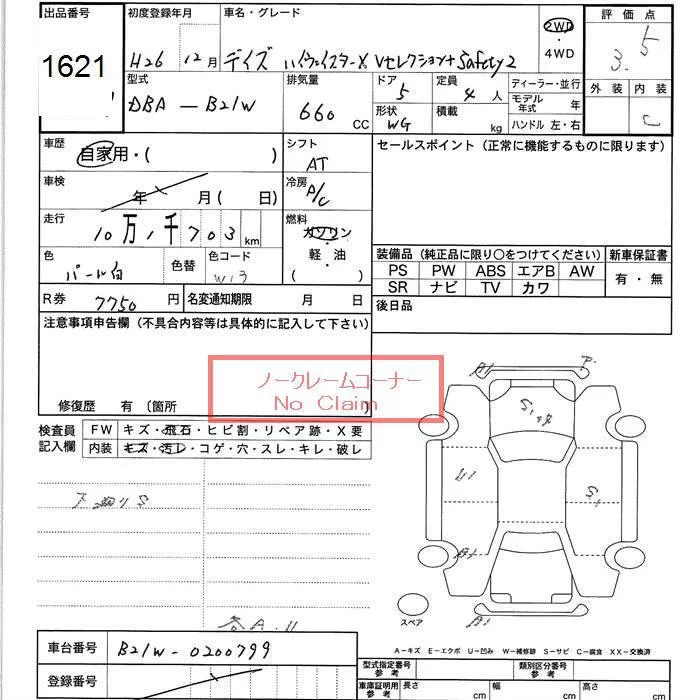 出品番号 初度登録年月 車名・グレード 評価点
1621 H26 年 12月 デイズ ハイウェイスターX Vセレクション+Safety2 2WD・4WD 3.5
型式 排気量 ドア 定員 ディーラー・並行 外装 内装
DBA-B21W 660 CC 5 4 人 モデル年式 年 C
形状 WG 積載 kg ハンドル 左・右
車歴 自家用・( ) シフト AT セールスポイント(正常に機能するものに限ります)
車検 年 月 ( 日) 冷房 A/C
走行 10万1千703km 燃料 ガソリン・軽油 ( )
色 パール白 色替 色コード W13
装備品(純正品に限り○をつけてください) 新車保証書
PS PW ABS エアB AW 有・無
SR ナビ TV カワ
R券 7750円 名変通知期限 月 日 後日品
注意事項申告欄(不具合内容等は具体的に記入して下さい)
ノークレームコーナー
No Claim
修復歴 有 (箇所
検査員記入欄 FW キズ・飛石・ヒビ割・リペア跡・X要
内装 キズ・汚レ・コゲ・穴・スレ・キレ・破レ
下廻りS
A1 P
S1
U1 S1
A1
A1
スペア
各A.U
A-キズ E-エクボ U-凹み W-補修跡 S-サビ C-腐食 XX-交換済
車台番号 B21W-0200799 型式指定番号参考 類別区分番号参考
登録番号 車庫証明用参考 長さ cm 幅 cm 高さ cm